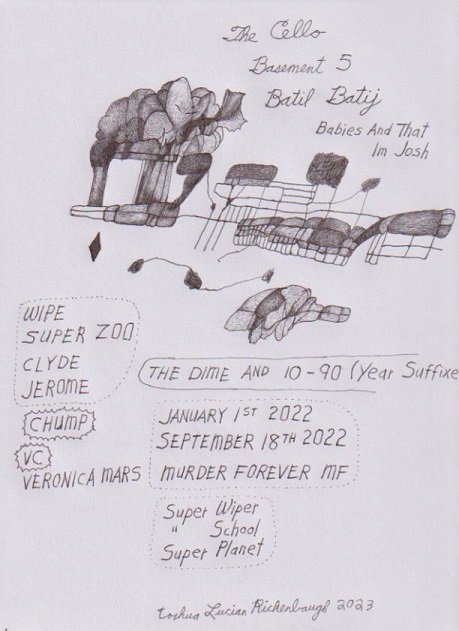 The Cello
Basement 5
Batil Batij
Babies And That
Im Josh
WIPE
SUPER ZOO
CLYDE
JEROME
THE DIME AND 10-90 (Year Suffixe
CHUMP
VC
VERONICA MARS
JANUARY 1ST 2022
SEPTEMBER 18TH 2022
MURDER FOREVER MF
Super Wiper
" School
Super Planet
Toshua Lucian Rickenbaugh 2023